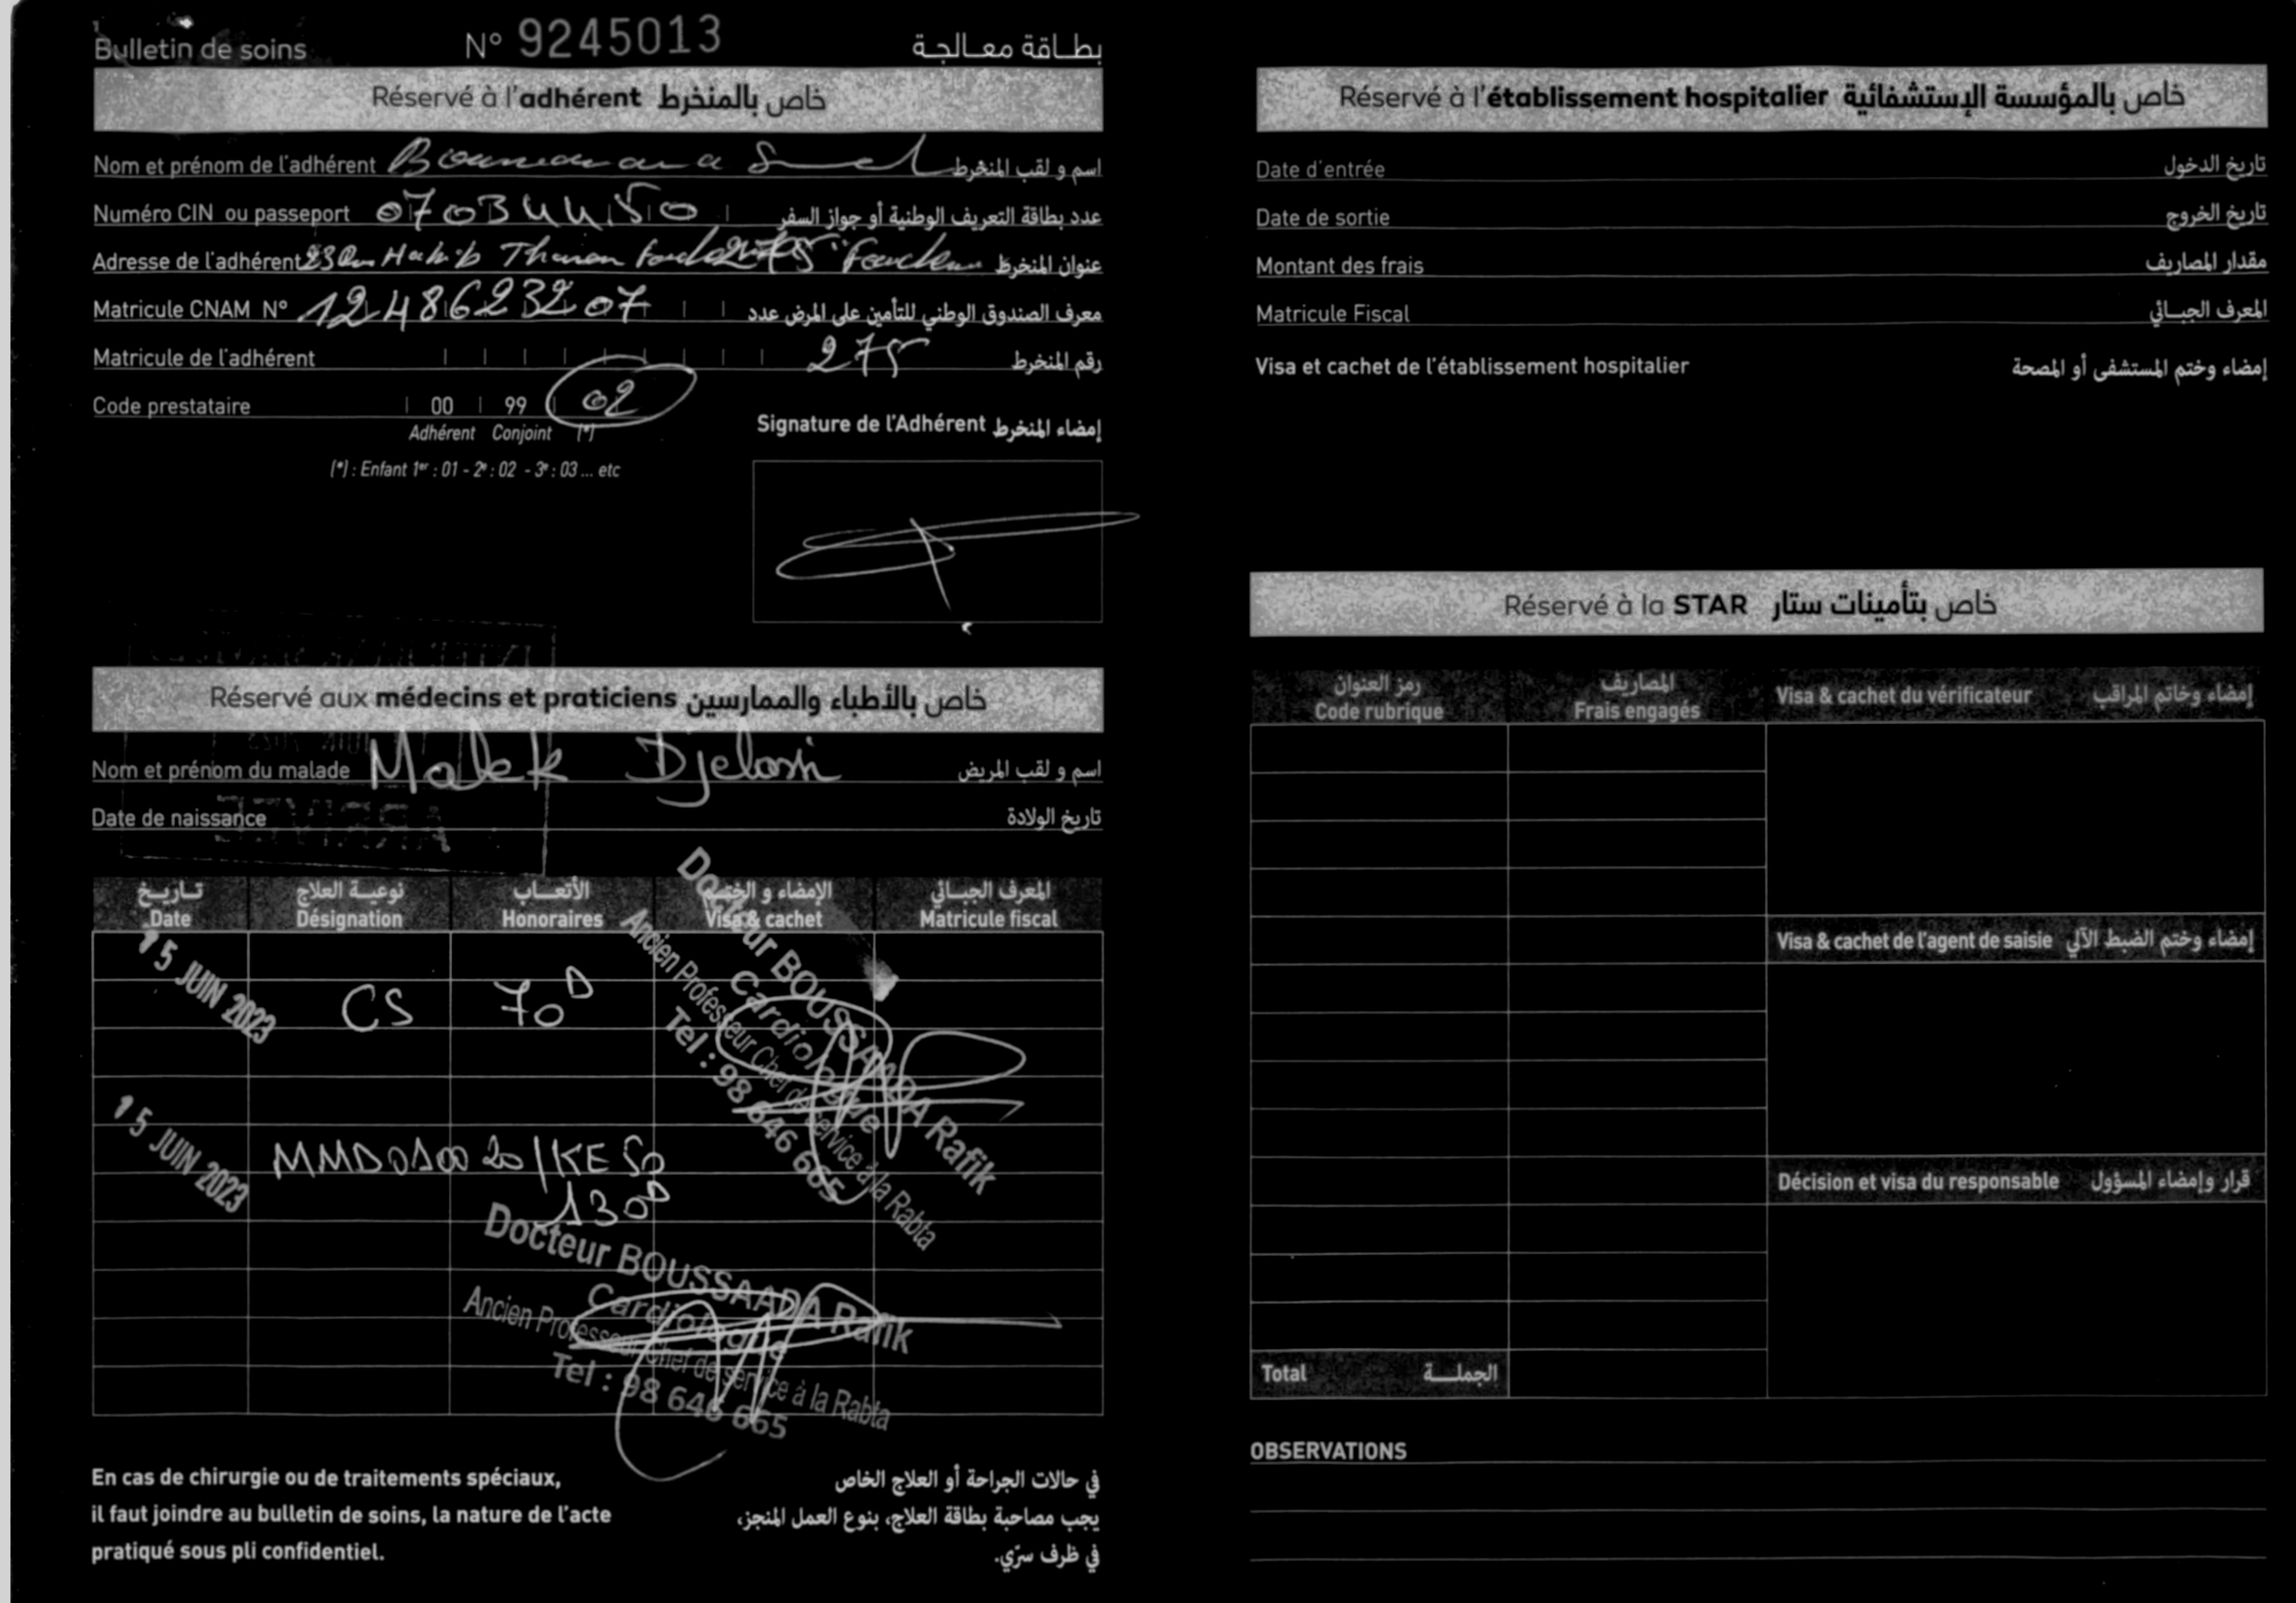 Bulletin de soins N° 9245013 بطاقة معالجة
Réservé à l'adhérent خاص بالمنخرط
Nom et prénom de l'adhérent اسم و لقب المنخرط
Numéro CIN ou passeport 07034450 عدد بطاقة التعريف الوطنية أو جواز السفر
Adresse de l'adhérent 23 Habib عنوان المنخرط
Matricule CNAM N° 1248623207 معرف الصندوق الوطني للتأمين على المرض عدد
Matricule de l'adhérent 275 رقم المنخرط
Code prestataire 00 99 02
Adhérent Conjoint (*)
(*) : Enfant 1er : 01 - 2e : 02 - 3e : 03 ... etc
Signature de l'Adhérent إمضاء المنخرط
Réservé aux médecins et praticiens خاص بالأطباء والممارسين
Nom et prénom du malade Malek Djelassi اسم و لقب المريض
Date de naissance تاريخ الولادة
تاريخ نوعية العلاج الأتعاب الإمضاء و الختم المعرف الجبائي
Date Désignation Honoraires Visa & cachet Matricule fiscal
15 JUIN 2023 CS 70D
Docteur BOUSSAADA Rafik
Cardiologue
Ancien Professeur Chef de service à la Rabta
Tel : 98 646 665
15 JUIN 2023 MMD0100 20/KE 50
130D
Docteur BOUSSAADA Rafik
Cardiologue
Ancien Professeur Chef de service à la Rabta
Tel : 98 646 665
En cas de chirurgie ou de traitements spéciaux,
il faut joindre au bulletin de soins, la nature de l'acte
pratiqué sous pli confidentiel.
في حالات الجراحة أو العلاج الخاص
يجب مصاحبة بطاقة العلاج، بنوع العمل المنجز،
في ظرف سرّي.
Réservé à l'établissement hospitalier خاص بالمؤسسة الإستشفائية
Date d'entrée تاريخ الدخول
Date de sortie تاريخ الخروج
Montant des frais مقدار المصاريف
Matricule Fiscal المعرف الجبائي
Visa et cachet de l'établissement hospitalier إمضاء وختم المستشفى أو المصحة
Réservé à la STAR خاص بتأمينات ستار
رمز العنوان المصاريف
Code rubrique Frais engagés Visa & cachet du vérificateur إمضاء وخاتم المراقب
Visa & cachet de l'agent de saisie إمضاء وختم الضبط الآلي
Décision et visa du responsable قرار وإمضاء المسؤول
Total الجملة
OBSERVATIONS